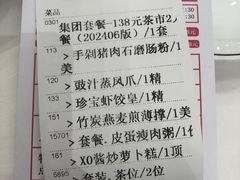 菜品
0301 集团套餐-138元茶市2人
餐(202406版)/1套
113 > 手剁猪肉石磨肠粉/1
美
120 > 豉汁蒸凤爪/1精
133 > 珍宝虾饺皇/1精
151 > 竹炭燕麦煎薄撑/1美
15701 > 套餐.皮蛋瘦肉粥/1
161 > XO酱炒萝卜糕/1顶
5895 > 套装.茶位/2位